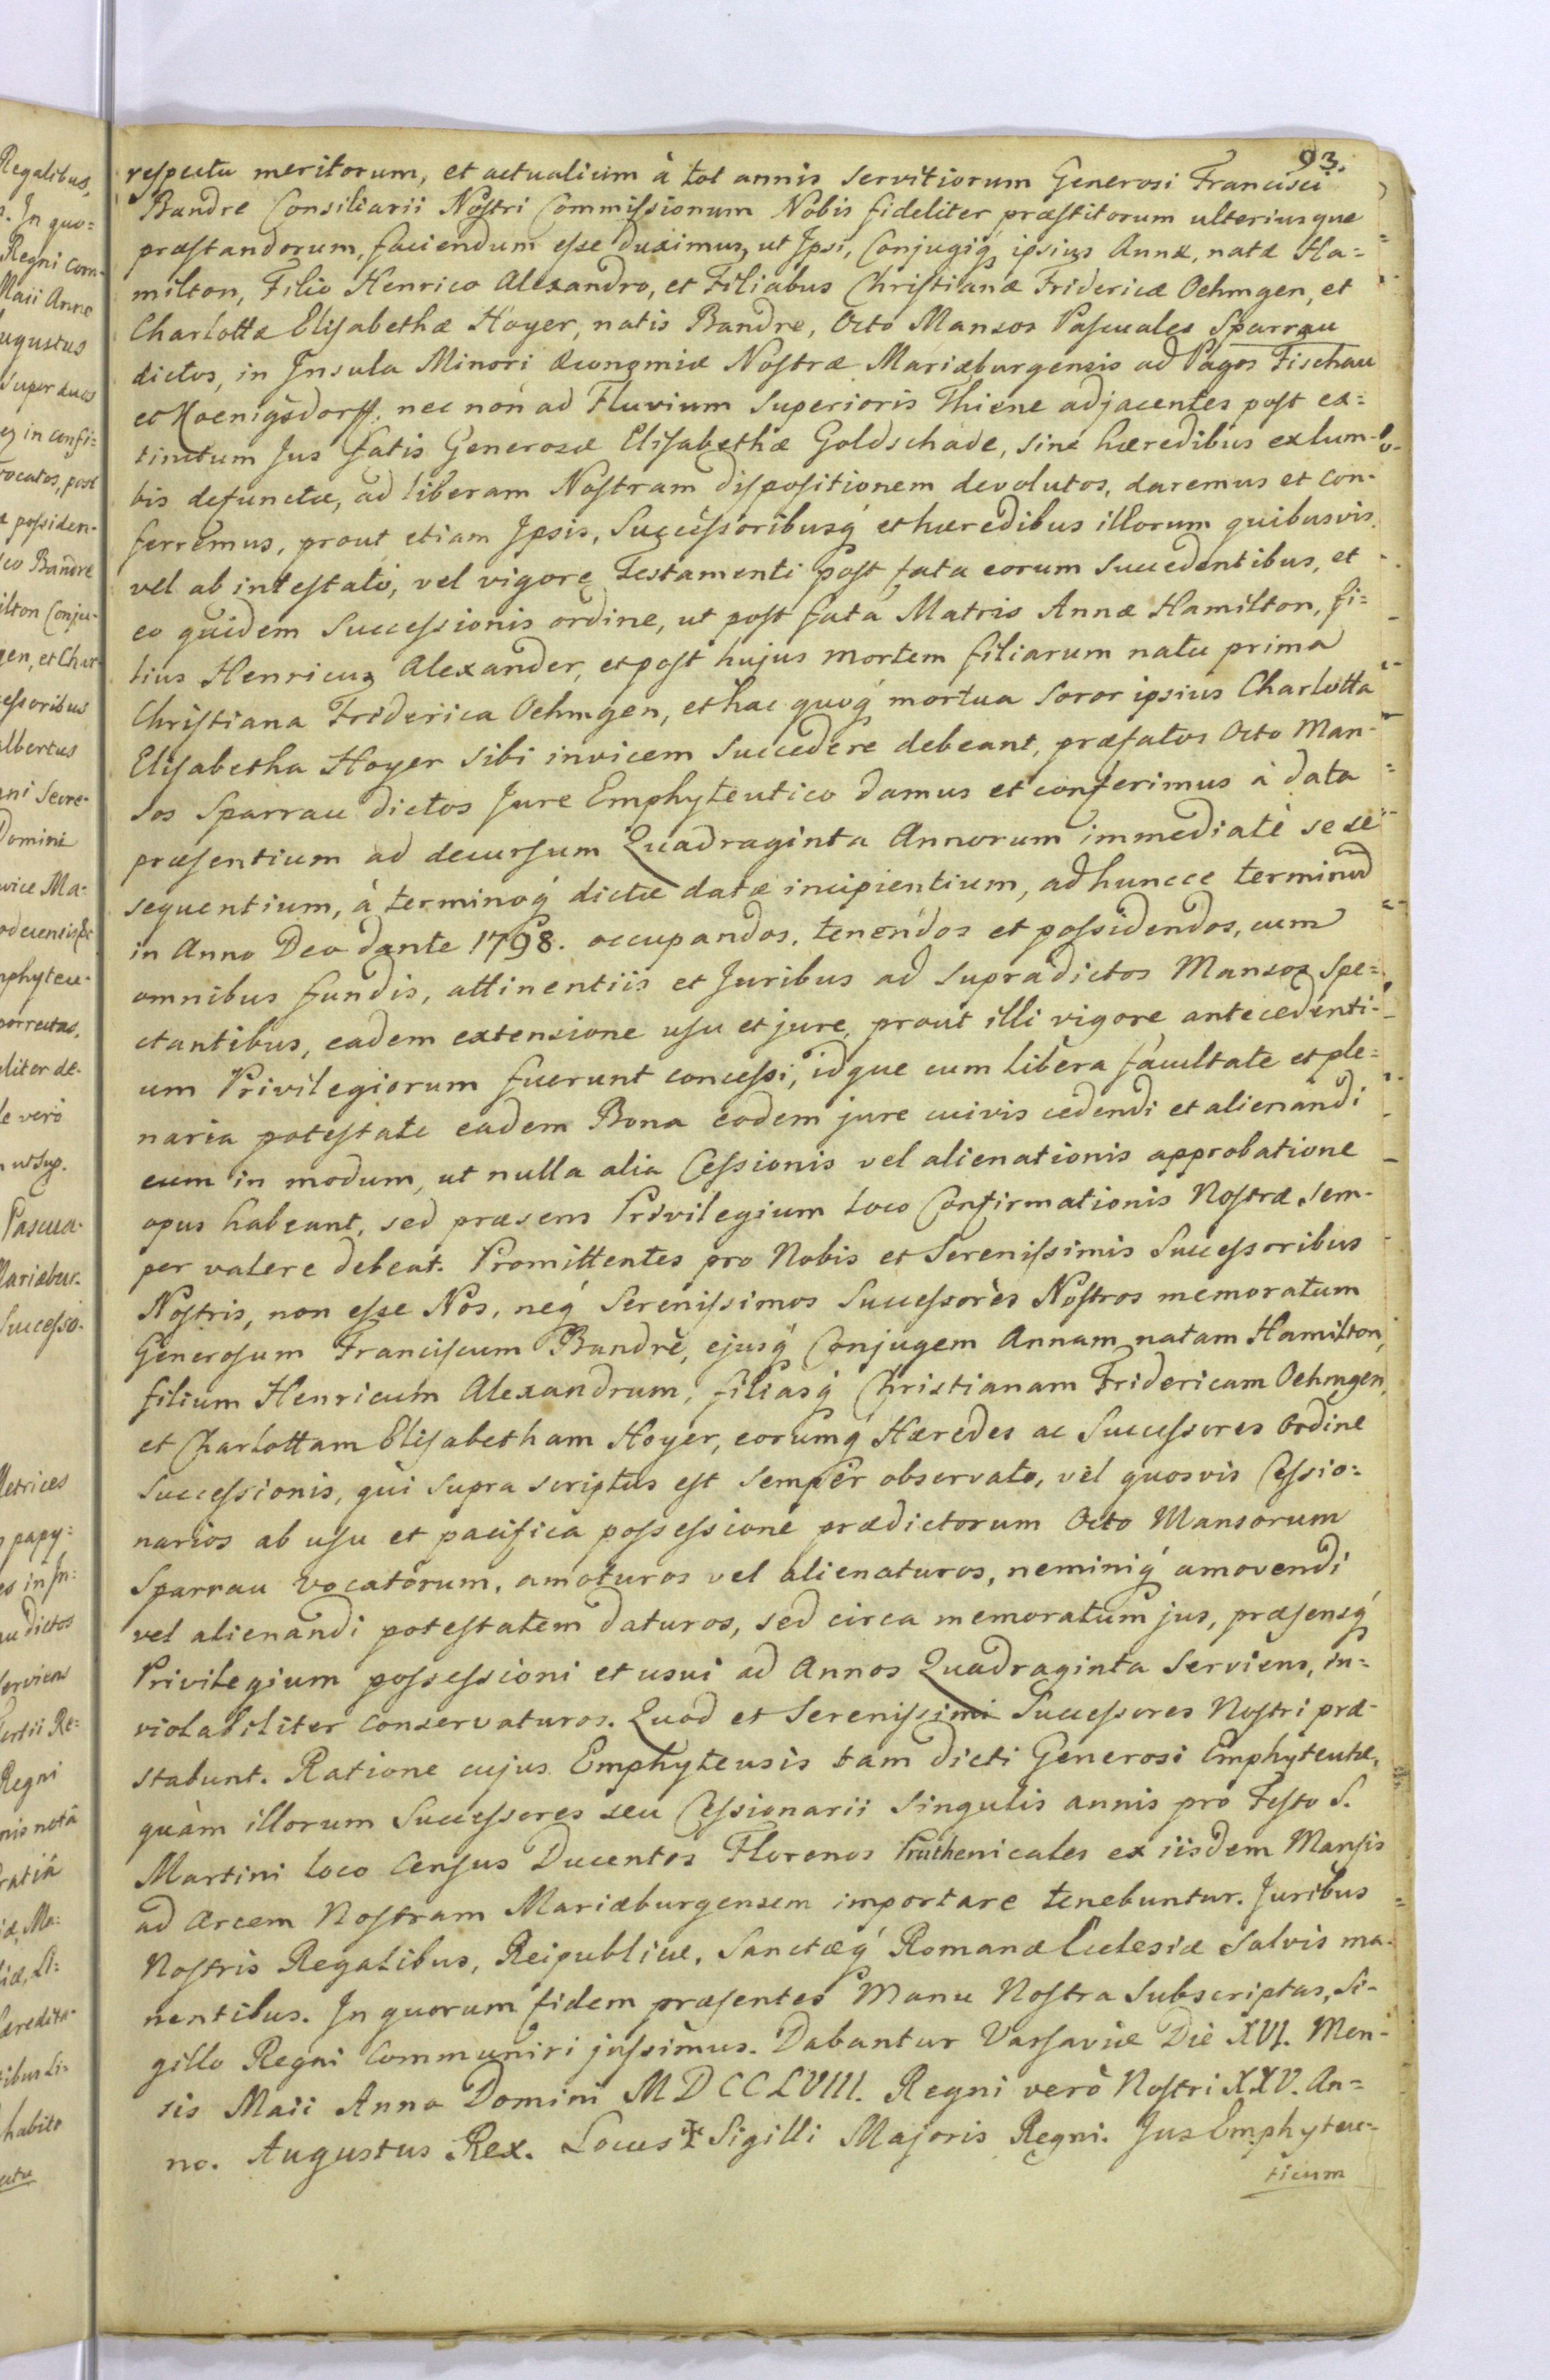 Regalibus,
. In quo=
Regni com-
Maii Anno
ugustus
super duas
ocatos, post
possiden-
co Bandre
ilton Conju-
gen, et Char-
essoribus
albertus
ani Secre-
Domini
vice Ma-
mphyteu-
porrectas,
liter de-
le verò
ut sup.
Pascua-
Mariæbur-
Successo-
Metrices
papy=
es in In:
au dictos
serviens
ertii Re=
Regni
nis notâ
ratiâ
iæ, Ma:
iæ, Li=
æredita-
ibus Li-
habito
93.
respectu meritorum, et actualium à tot annis servitiorum Generosi Francisci
Bandre Consiliarii Nostri Commissionum Nobis fideliter præstitorum ulteriusque
præstandorum, faciendum esse duximus, ut Ipsi, Conjugiq́ ipsius Annæ, natæ Ha=
milton, Filio Henrico Alexandro, et Filiabus Christianæ Fridericæ Oehmgen, et
Charlottæ Elisabethæ Hoyer, natis Bandre, Octo Mansos Pascuales Sparrau
dictos, in Insula Minori Æconomiæ Nostræ Mariæburgensis ad Pagos Fischau
et Koenigsdorff. nec non ad Fluvium Superioris Thiene adjacentes post ex=
tinctum Jus fatis Generosæ Elisabethæ Goldschade, sine hæredibus ex lum-
bis defunctæ, ad liberam Nostram dispositionem devolutos, daremus et con-
ferremus, prout etiam Ipsis, Successoribusq́ et hæredibus illorum quibusvis
vel ab intestato, vel vigore Testamenti post fata eorum succedentibus, et
eo quidem Successionis ordine, ut post fata Matris Annæ Hamilton, fi=
lius Henricus Alexander, et post hujus mortem filiarum natu prima
Christiana Friderica Oehmgen, et hac quoq́ mortua soror ipsius Charlotta
Elisabetha Hoyer sibi invicem succedere debeant, præfatos Octo Man-
sos Sparrau dictos Jure Emphyteutico damus et conferimus à data
præsentium ad decursum Quadraginta Annorum immediatè se se
sequentium, à terminoq́ dictæ datæ incipientium, ad huncce terminũ
in Anno Deo dante 1798. occupandos, tenendos et possidendos, cum
omnibus fundis, attinentiis et Juribus ad supradictos Mansos spe=
ctantibus, eadem extensione usu et jure, prout illi vigore antecedenti-
um Privilegiorum fuerunt concessi, idque cum libera facultate et ple=
naria potestate eadem Bona eodem jure cuivis cedendi et alienandi
eum in modum, ut nulla alia Cessionis vel alienationis approbatione
opus habeant, sed præsens Privilegium loco Confirmationis Nostræ sem-
per valere debeat. Promittentes pro Nobis et Serenissimis Successoribus
Nostris, non esse Nos, neq́ Serenissimos Successores Nostros memoratum
Generosum Franciscum Bandrè, ejusq́ Conjugem Annam natam Hamilton,
filium Henricum Alexandrum, filiasq́ Christianam Fridericam Oehmgen,
et Charlottam Elisabetham Hoyer, eorumq́ Hæredes ac Successores Ordine
Successionis, qui supra scriptus est semper observato, vel quosvis Cessio=
narios ab usu et pacifica possessione prædictorum Octo Mansorum
Sparrau vocatorum, amoturos vel alienaturos, neminiq́ amovendi
vel alienandi potestatem daturos, sed circa memoratum jus, præsensq́
Privilegium possessioni et usui ad Annos Quadraginta serviens, in=
violabiliter conservaturos. Quod et Serenissimi Successores Nostri præ-
stabunt. Ratione cujus Emphyteusis tam dicti Generosi Emphyteutæ,
quàm illorum Successores seu Cessionarii singulis annis pro Festo S.
Martini loco Census Ducentos Florenos Pruthenicales ex iisdem Mansis
ad Arcem Nostram Mariæburgensem importare tenebuntur. Juribus
Nostris Regalibus, Reipublicæ, Sanctæq́ Romanæ Ecclesiæ salvis ma-
nentibus. In quorum fidem præsentes Manu Nostra subscriptas, si-
gillo Regni communiri jussimus. Dabantur Varsaviæ Die XVI. Men-
sis Maii Anno Domini MDCCLVIII. Regni verò Nostri XXV. An=
no. Augustus Rex. Locus ✝ Sigilli Majoris Regni. Jus Emphyteu-
ticum